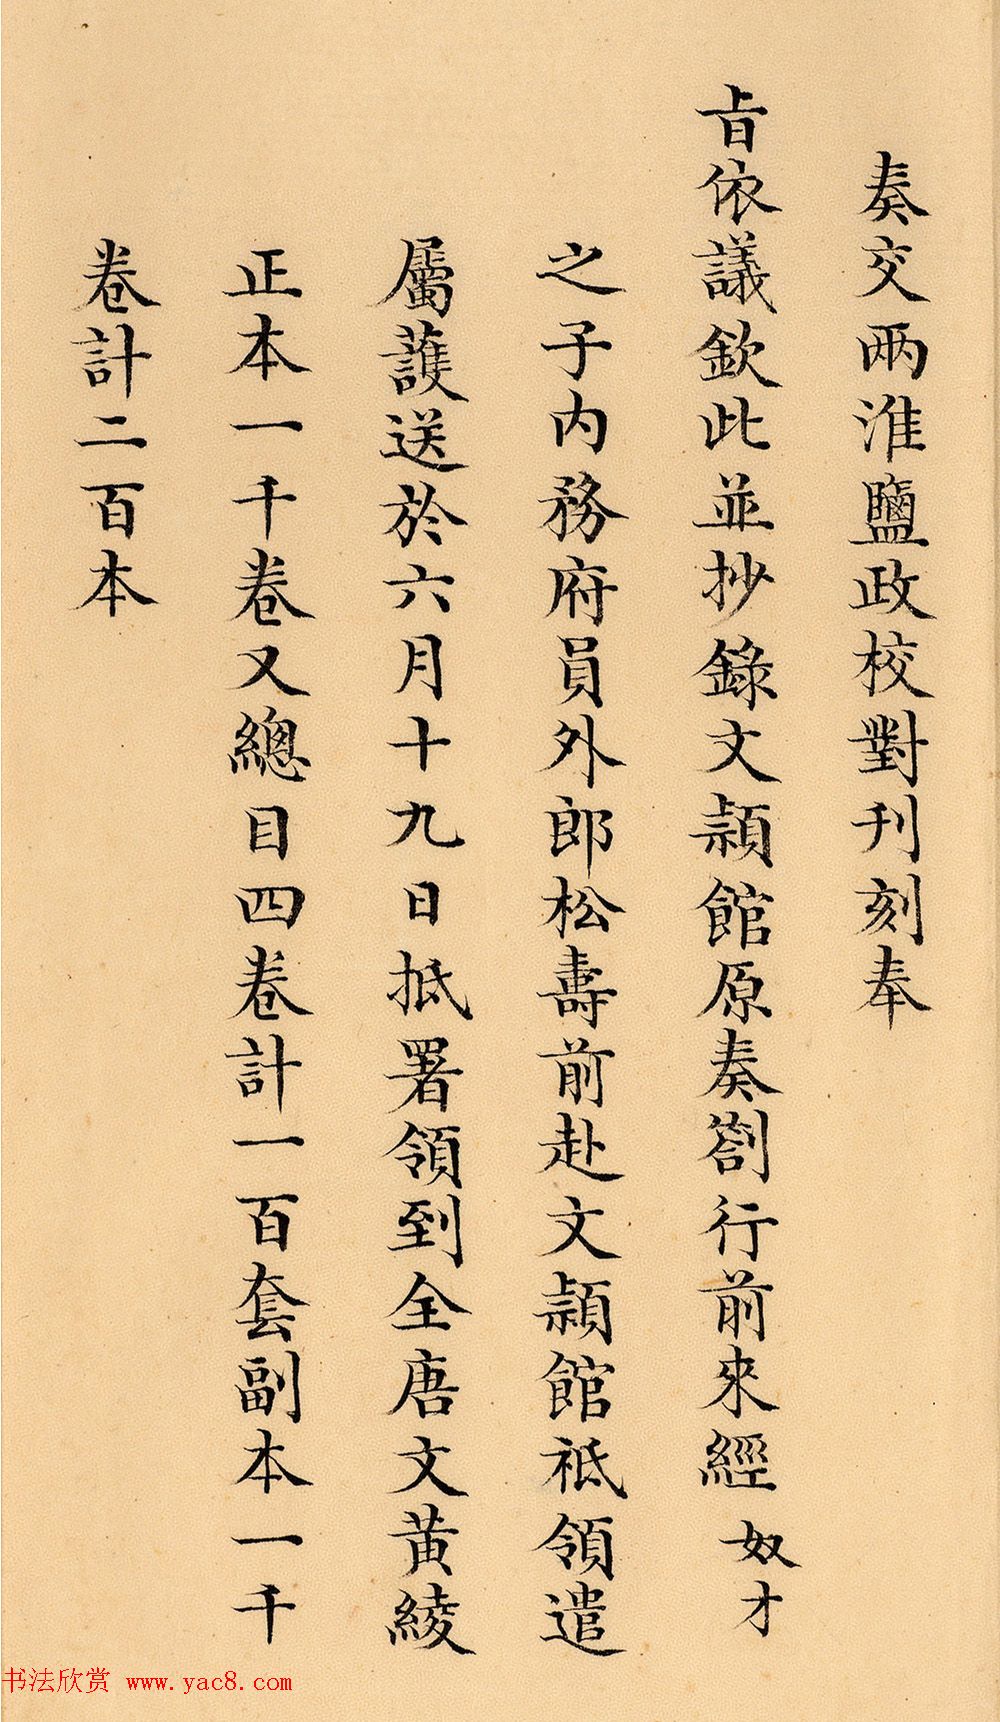 奏交兩淮鹽政校對刊刻奉
旨依議欽此並抄錄文頴館原奏劄行前來經奴才
之子內務府員外郎松壽前赴文頴館祗領遣
屬護送於六月十九日抵署領到全唐文黃綾
正本一千卷又總目四卷計一百套副本一千
卷計二百本
书法欣赏 www.yac8.com